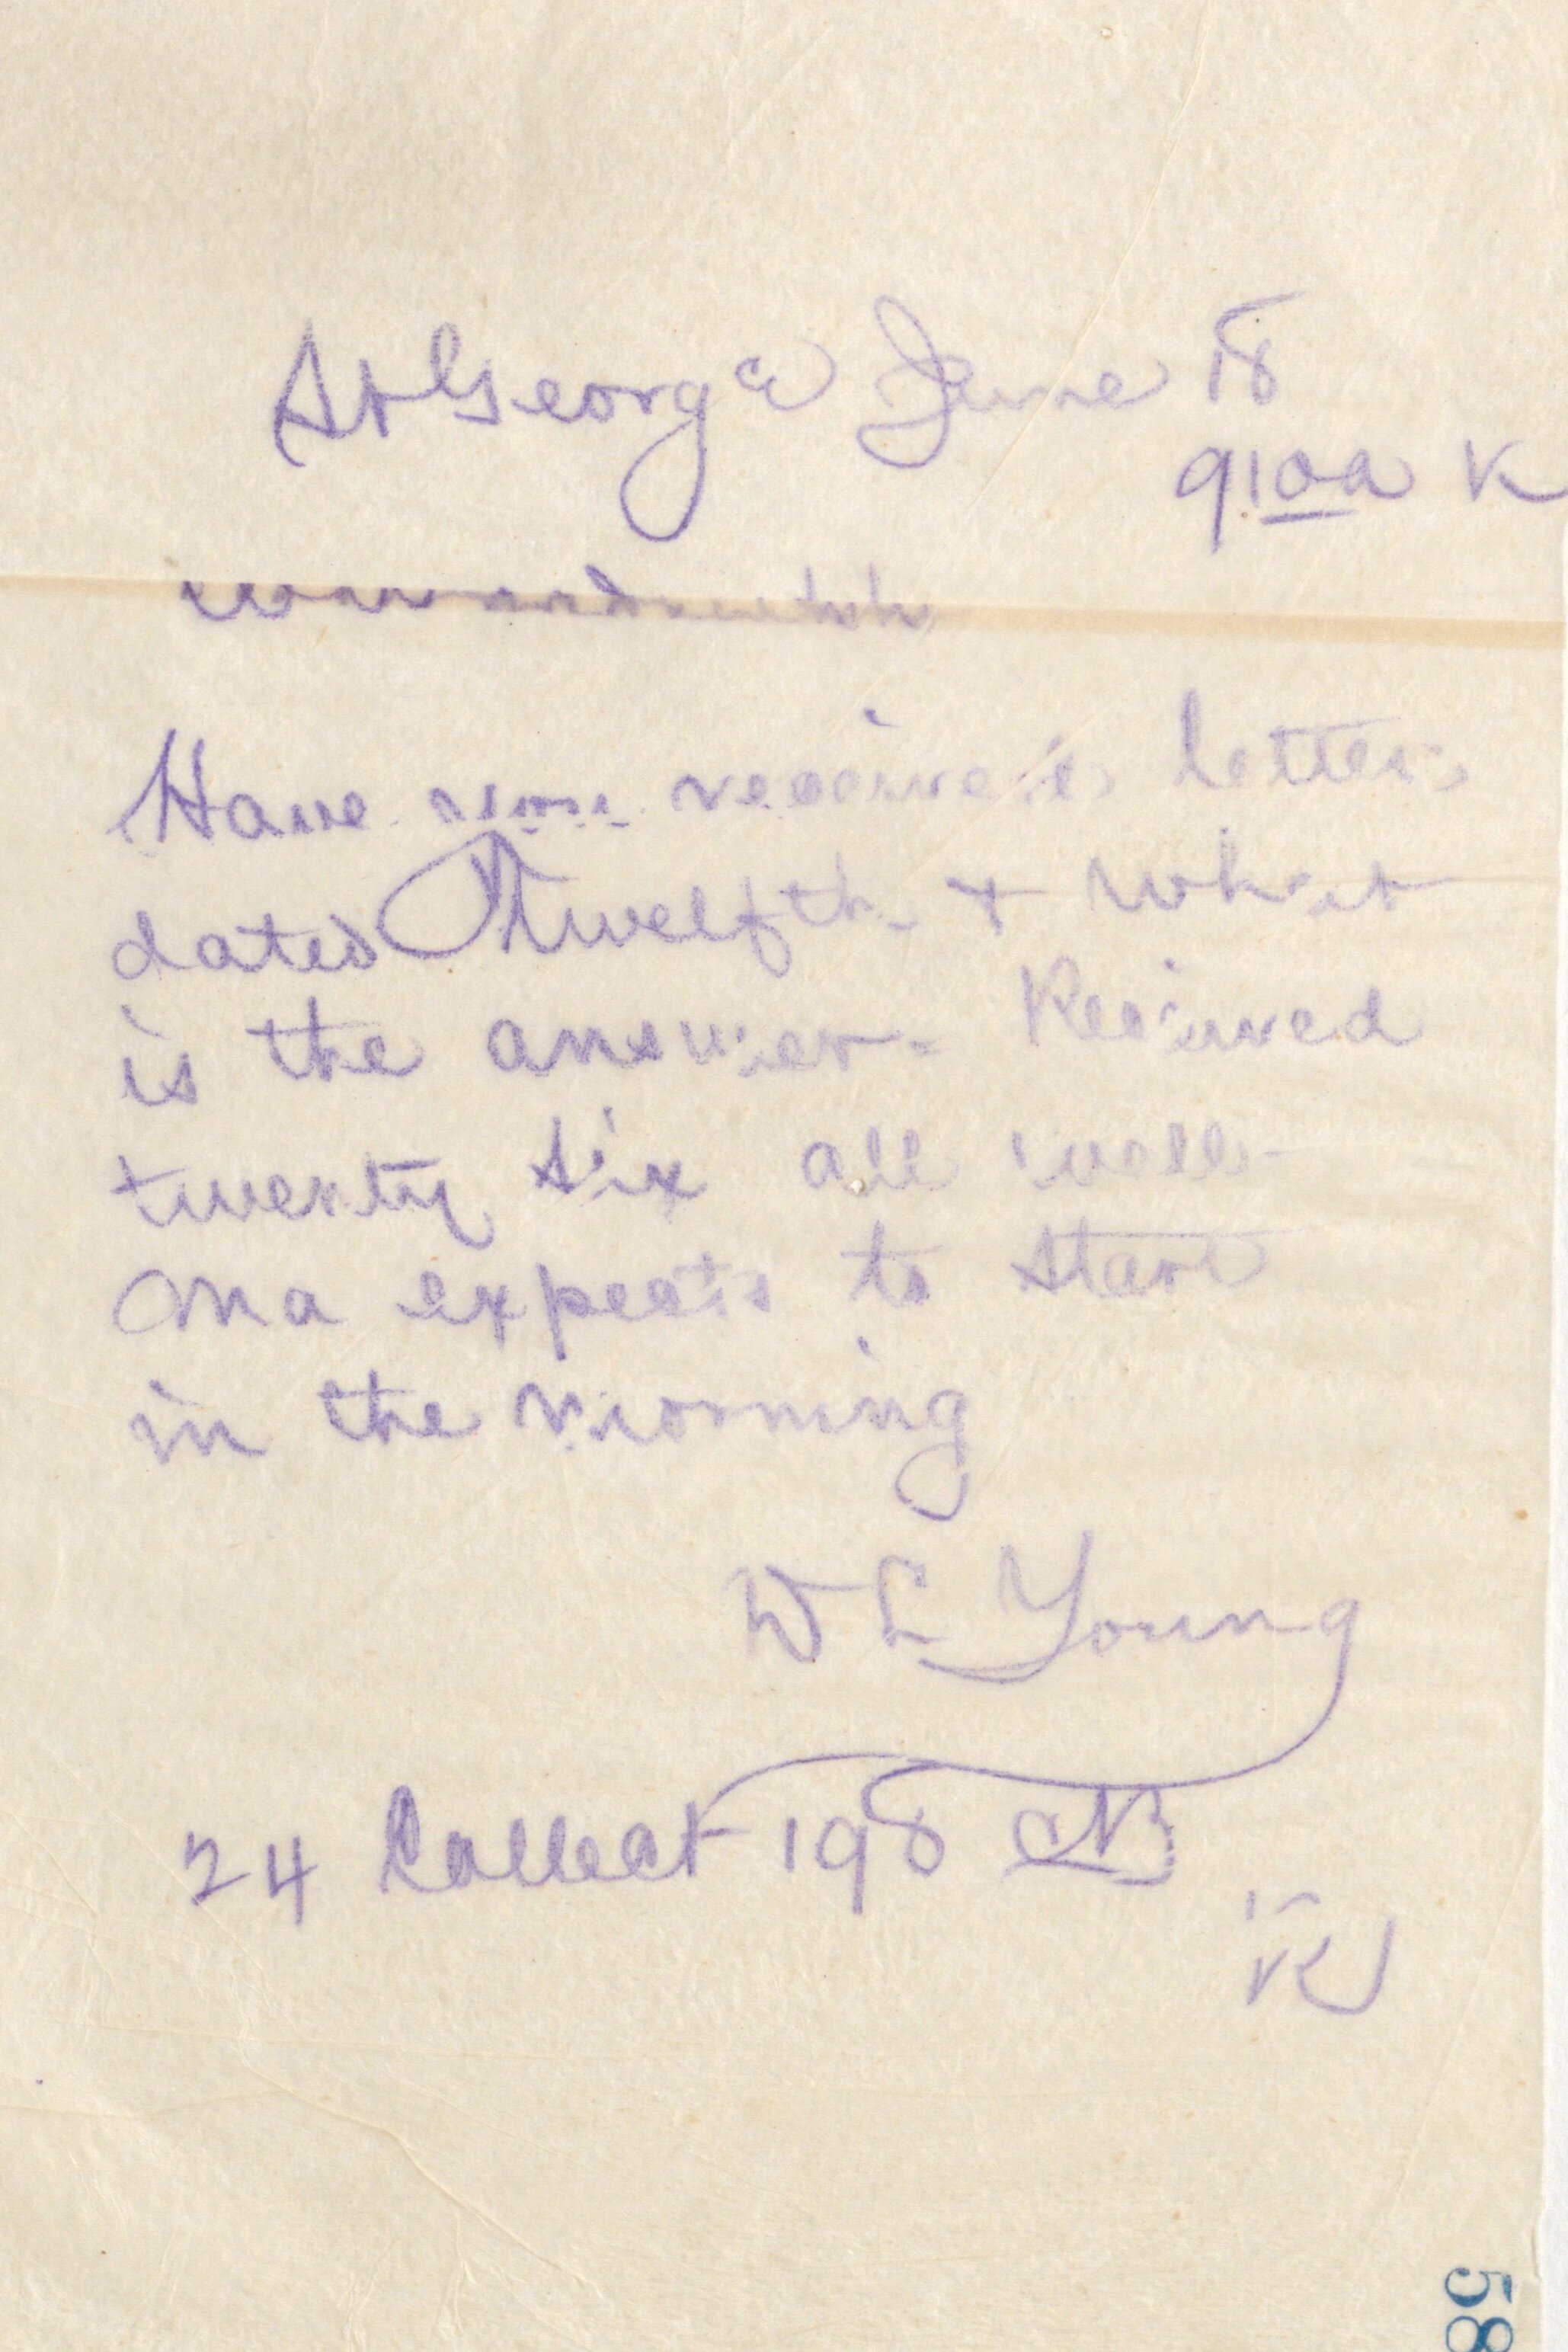 St George June 18
910a K
Have you received letters
dated Twelfth & what
is the answer - Received
twenty six all well -
Ma expects to start
in the morning
W L Young
24 Collect 198
K
58